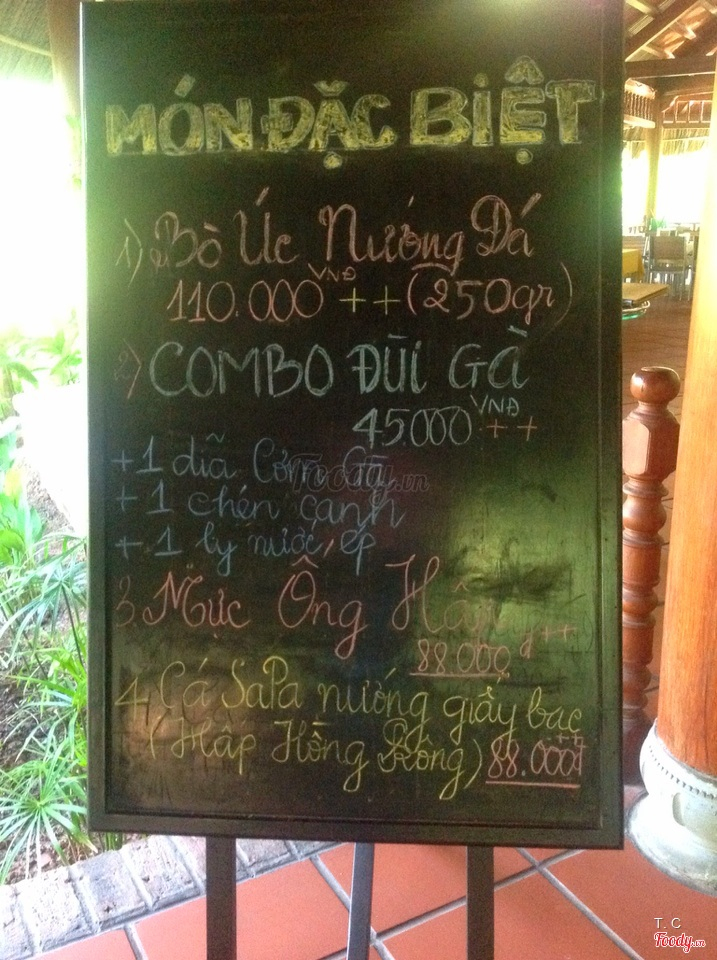 MÓN ĐẶC BIỆT
1) Bò Úc Nướng Đá
110.000 VNĐ ++ (250gr)
2) COMBO ĐÙI GÀ
45.000 VNĐ ++
+ 1 dĩa Cơm Gà
+ 1 chén canh
+ 1 ly nước ép
Foody.vn
3. Mực Ống Hấp
88.000 đ++
4. Cá SaPa nướng giấy bạc
(Hấp Hồng Kông) 88.000đ ++
T. C
Foody.vn